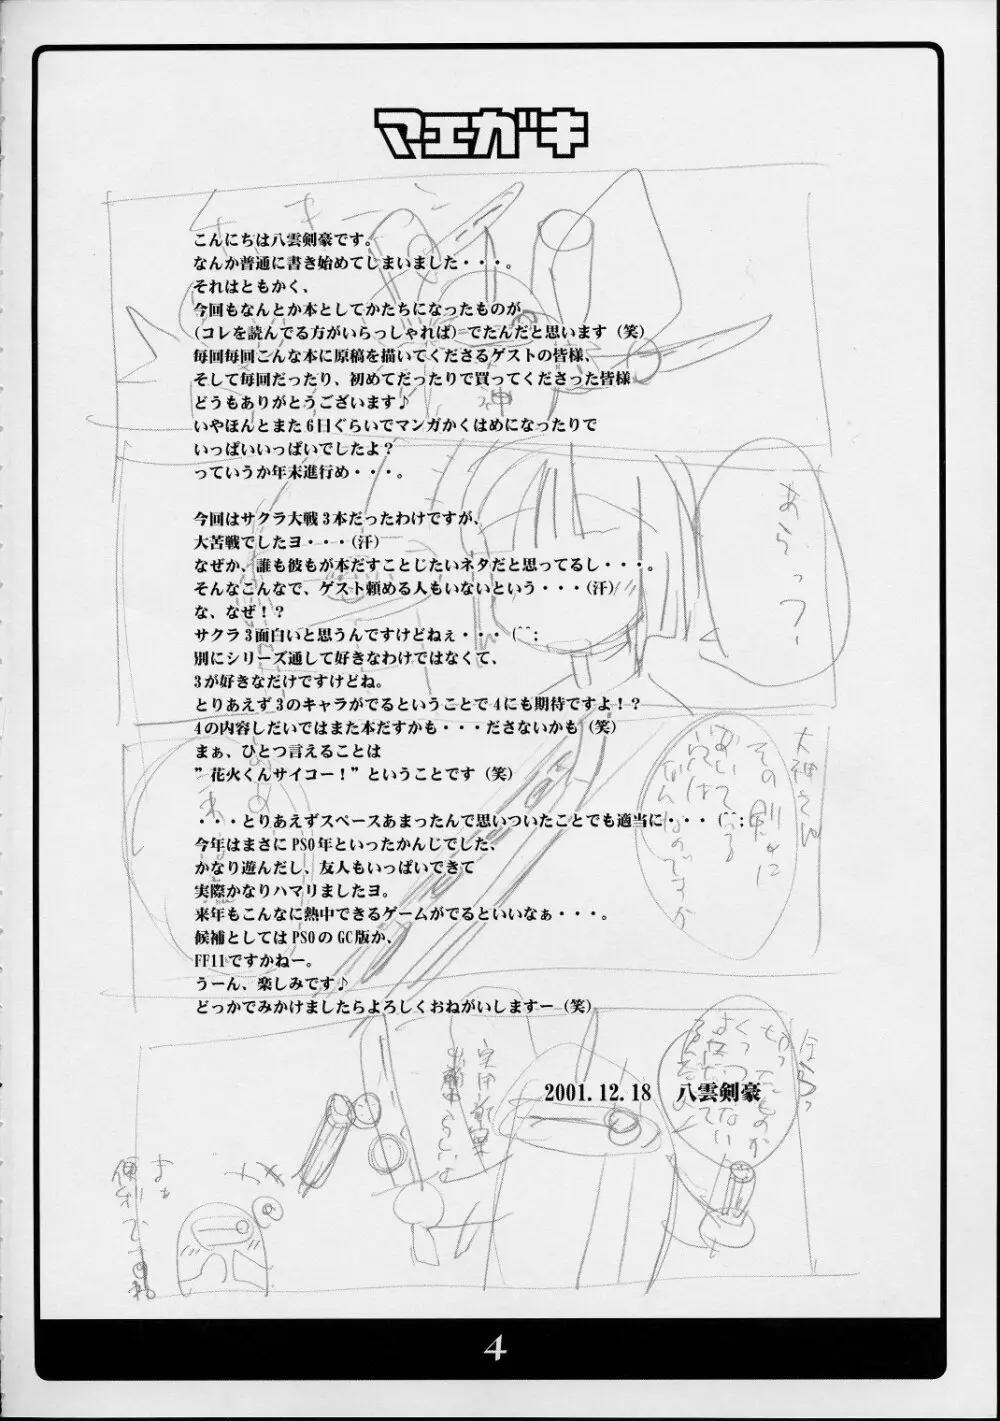 マエガキ
こんにちは八雲剣豪です。
なんか普通に書き始めてしまいました・・・。
それはともかく、
今回もなんとか本としてかたちになったものが
(コレを読んでる方がいらっしゃれば) でたんだと思います (笑)
毎回毎回こんな本に原稿を描いてくださるゲストの皆様、
そして毎回だったり、初めてだったりで買ってくださった皆様
どうもありがとうございます♪
いやほんとまた6日ぐらいでマンガかくはめになったりで
いっぱいいっぱいでしたよ?
っていうか年末進行め・・・。
今回はサクラ大戦3本だったわけですが、
大苦戦でしたヨ・・・(汗)
なぜか、誰も彼もが本だすことじたいネタだと思ってるし・・・。
そんなこんなで、ゲスト頼める人もいないという・・・(汗)
な、なぜ!?
サクラ3面白いと思うんですけどねぇ・・・(^^;
別にシリーズ通して好きなわけではなくて、
3が好きなだけですけどね。
とりあえず3のキャラがでるということで4にも期待ですよ!?
4の内容しだいではまた本だすかも・・・ださないかも (笑)
まぁ、ひとつ言えることは
”花火くんサイコー!”ということです (笑)
・・・とりあえずスペースあまったんで思いついたことでも適当に・・・(^^;
今年はまさにPSO年といったかんじでした、
かなり遊んだし、友人もいっぱいできて
実際かなりハマりましたヨ。
来年もこんなに熱中できるゲームがでるといいなぁ・・・。
候補としてはPSOのGC版か、
FF11ですかねー。
うーん、楽しみです♪
どっかでみかけましたらよろしくおねがいしますー (笑)
2001.12.18 八雲剣豪
あらっ
大神さん
その剣に
あいている
穴は
なんなのですか
4